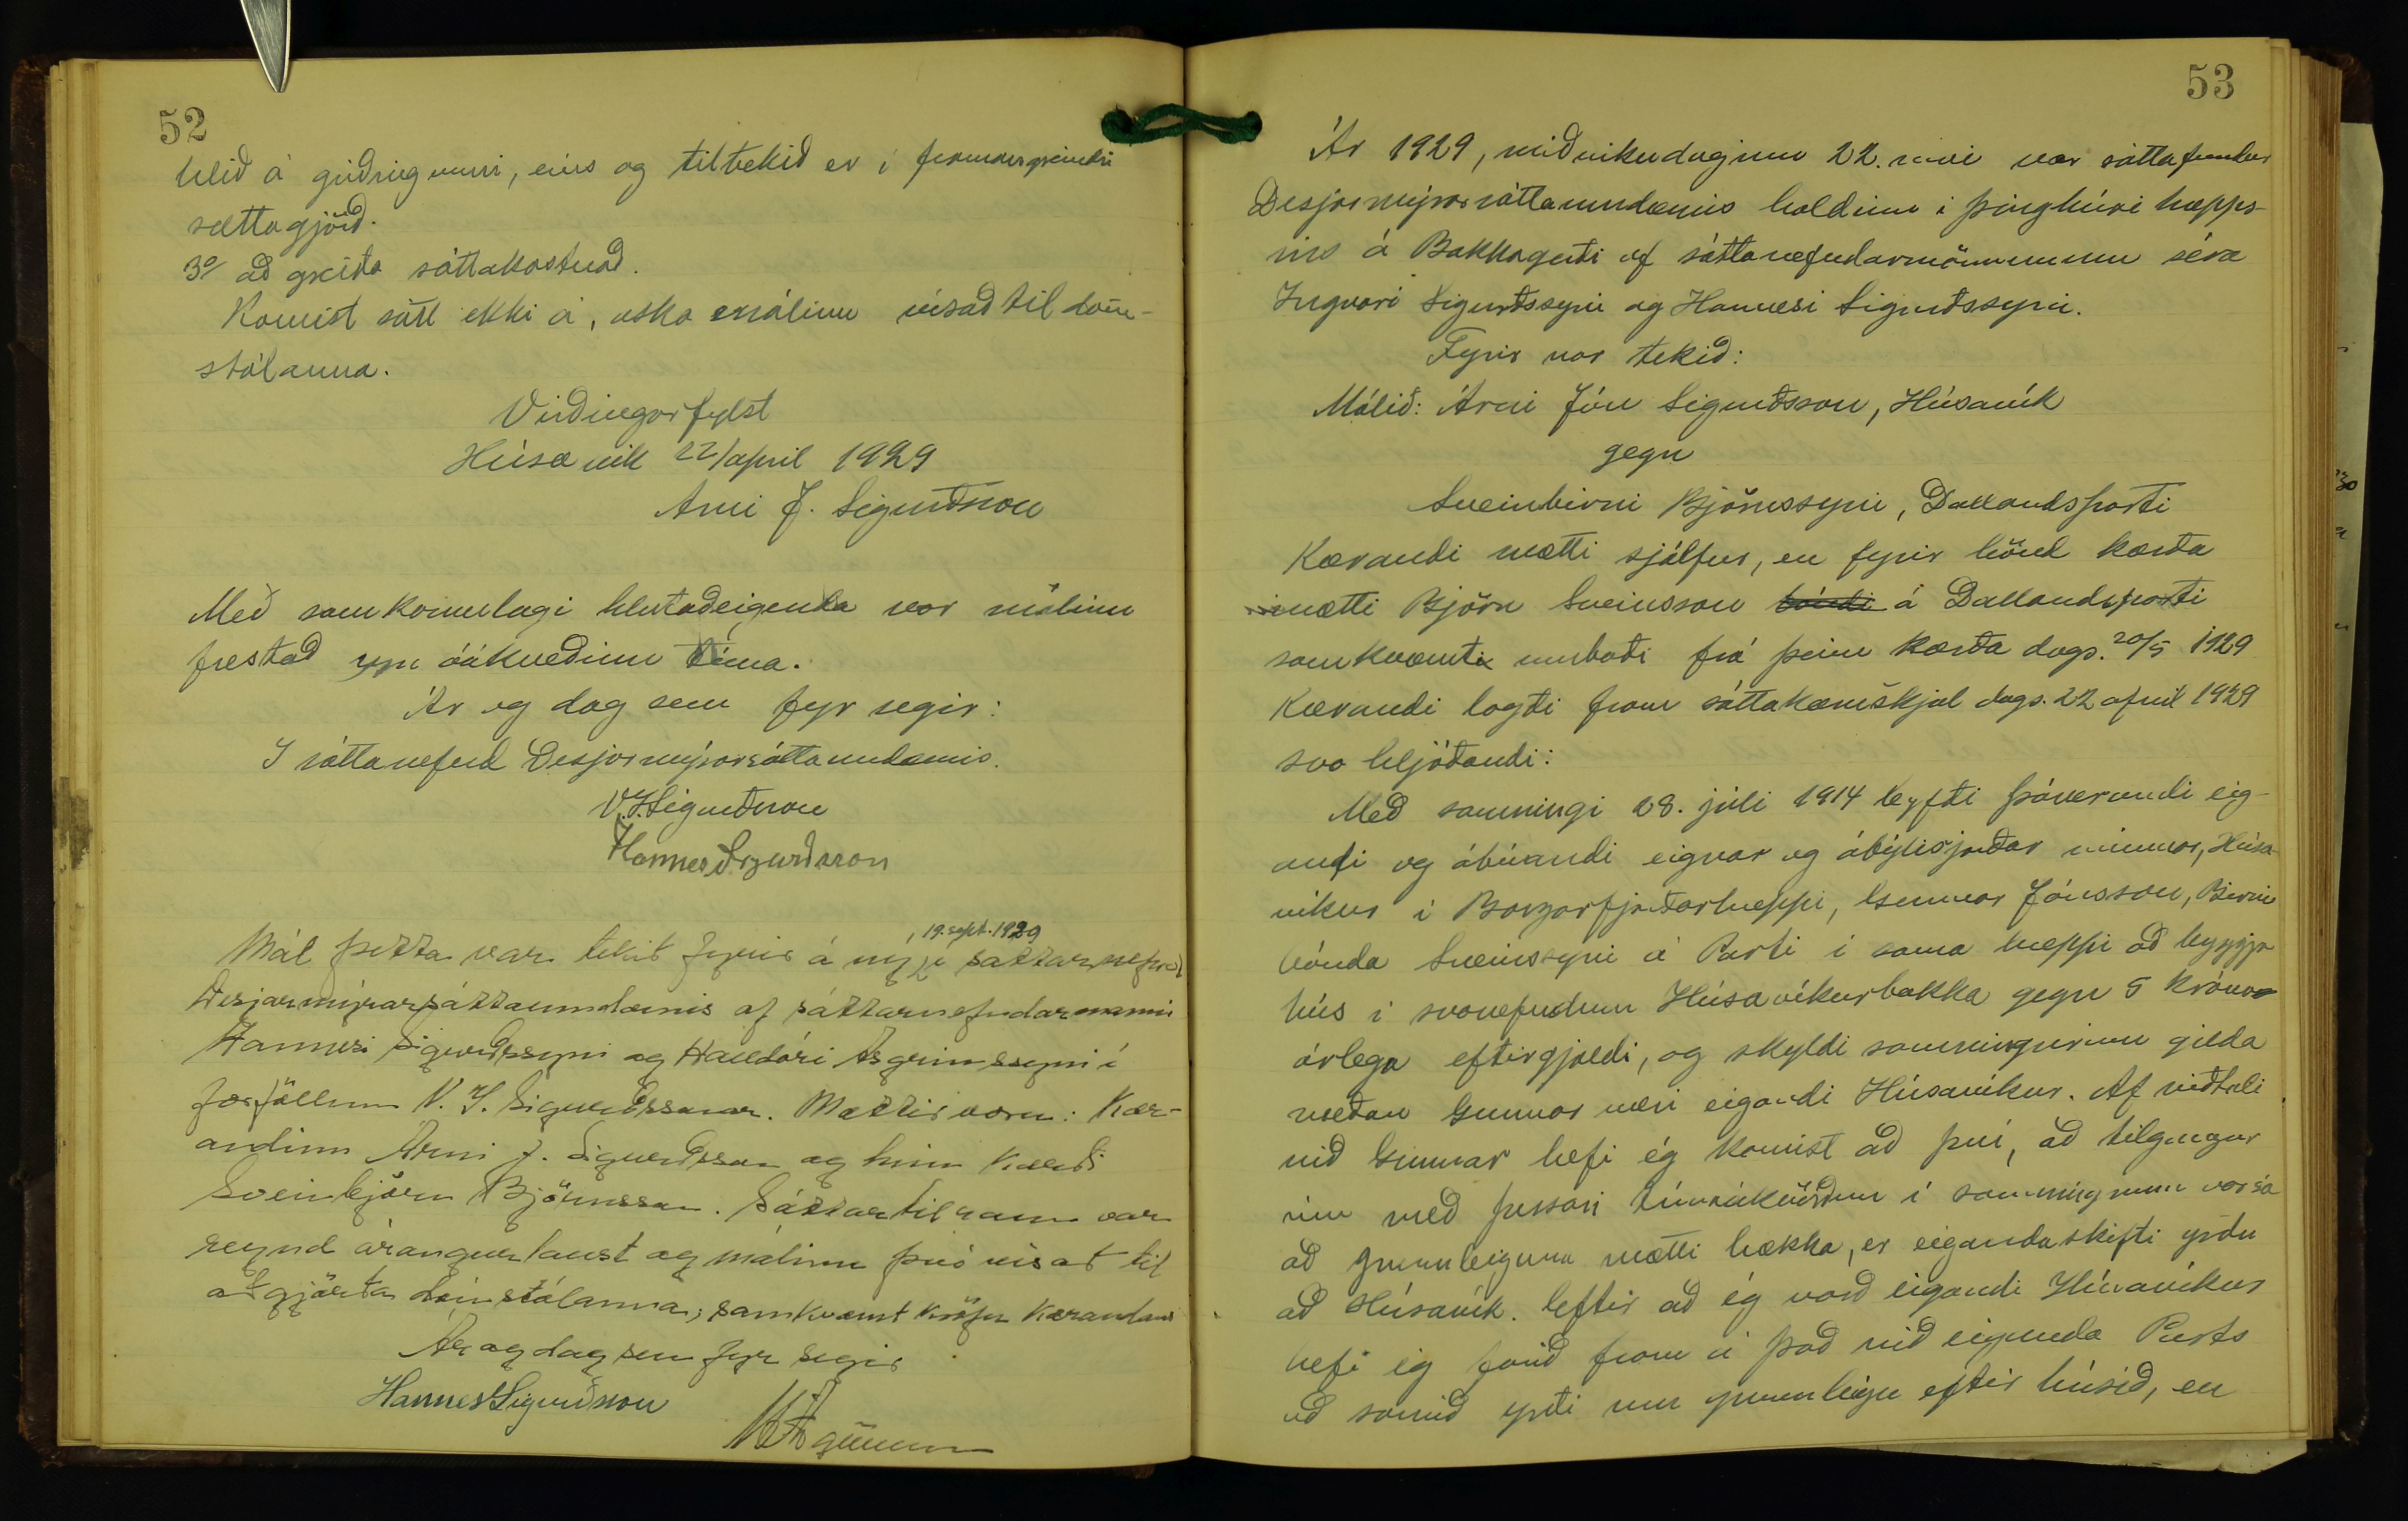 52
hlið á girðingunni, eins og tiltekið er í framangreindri
sættagjörð.
3º að greiða sáttakostnað.
Komist sátt ekki á, óska ég málinu vísað til dóm-
stólanna.
Virðingarfylst
Húsavík 22/apríl 1929
Árni J. Sigurðsson
Með samkomulagi hlutaðeigenda var málinu
frestað um óákveðinn tíma.
Ár og dag sem fyr segir:
Í sáttanefnd Desjarmýrarsáttaumdæmis.
V.I. Sigurðsson
Hannes Sigurðsson
Mál þetta var tekið fyrir á ný, 19. sept. 1929 í sáttarnefnd
Desjarmýrarsáttaumdæmis af sáttarnefndarmanni
Hannesi Sigurðssyni og Halldóri Ásgrímssyni í
forföllum V. I. Sigurðssonar. Mættir voru: Kær-
andinn Árni J. Sigurðsson og hinn kærði
Sveinbjörn Björnsson. Sáttartilraun var
reynd árangurlaust og málinu því vísað til
aðgjörða dómstólanna, samkvæmt kröfu kærandans
Ár og dag sem fyr segir
Hannes Sigurðsson
53
Ár 1929, miðvikudaginn 22. maí var sáttafundur
Desjarmýrarsáttaumdæmis haldinn í þinghúsi hrepps-
ins á Bakkagerði af sáttanefndarmönnunum séra
Ingvari Sigurðssyni og Hannesi Sigurðssyni.
Fyrir var tekið:
Málið: Árni Jón Sigurðsson, Húsavík
gegn
Sveinbirni Björnssyni, Dallandsparti
Kærandi mætti sjálfur, en fyrir hönd kærða
mætti Björn Sveinsson bóndi á Dallandsparti
samkvæmt umboði frá þeim kærða dags. 20/5 1929
Kærandi lagði fram sáttakæruskjal dags. 22 apríl 1929
svo hljóðandi:
Með samningi 28. júli 1914 leyfði þáverandi eig-
andi og ábúandi eignar og ábýlisjarðar minnar, Húsa-
víkur í Borgarfjarðarhreppi, Gunnar Jónsson, Birni
bónda Sveinssyni á Parti í sama hreppi að byggja
hús í svonefndum Húsavíkurbakka gegn 5 króna
árlega eftirgjaldi, og skyldi samningurinn gilda
meðan Gunnar væri eigandi Húsavíkur. Af viðtali
við Gunnar hefi ég komist að því, að tilgangur
inn með þessari tímaákvörðun í samningnum var sá
að grunnleiguna mætti hækka, er eigandaskifti yrðu
að Húsavík. Eftir að ég varð eigandi Húsavíkur
hefi ég farið fram á það við eiganda Parts
að samið yrði um grunnleigu eftir húsið, en